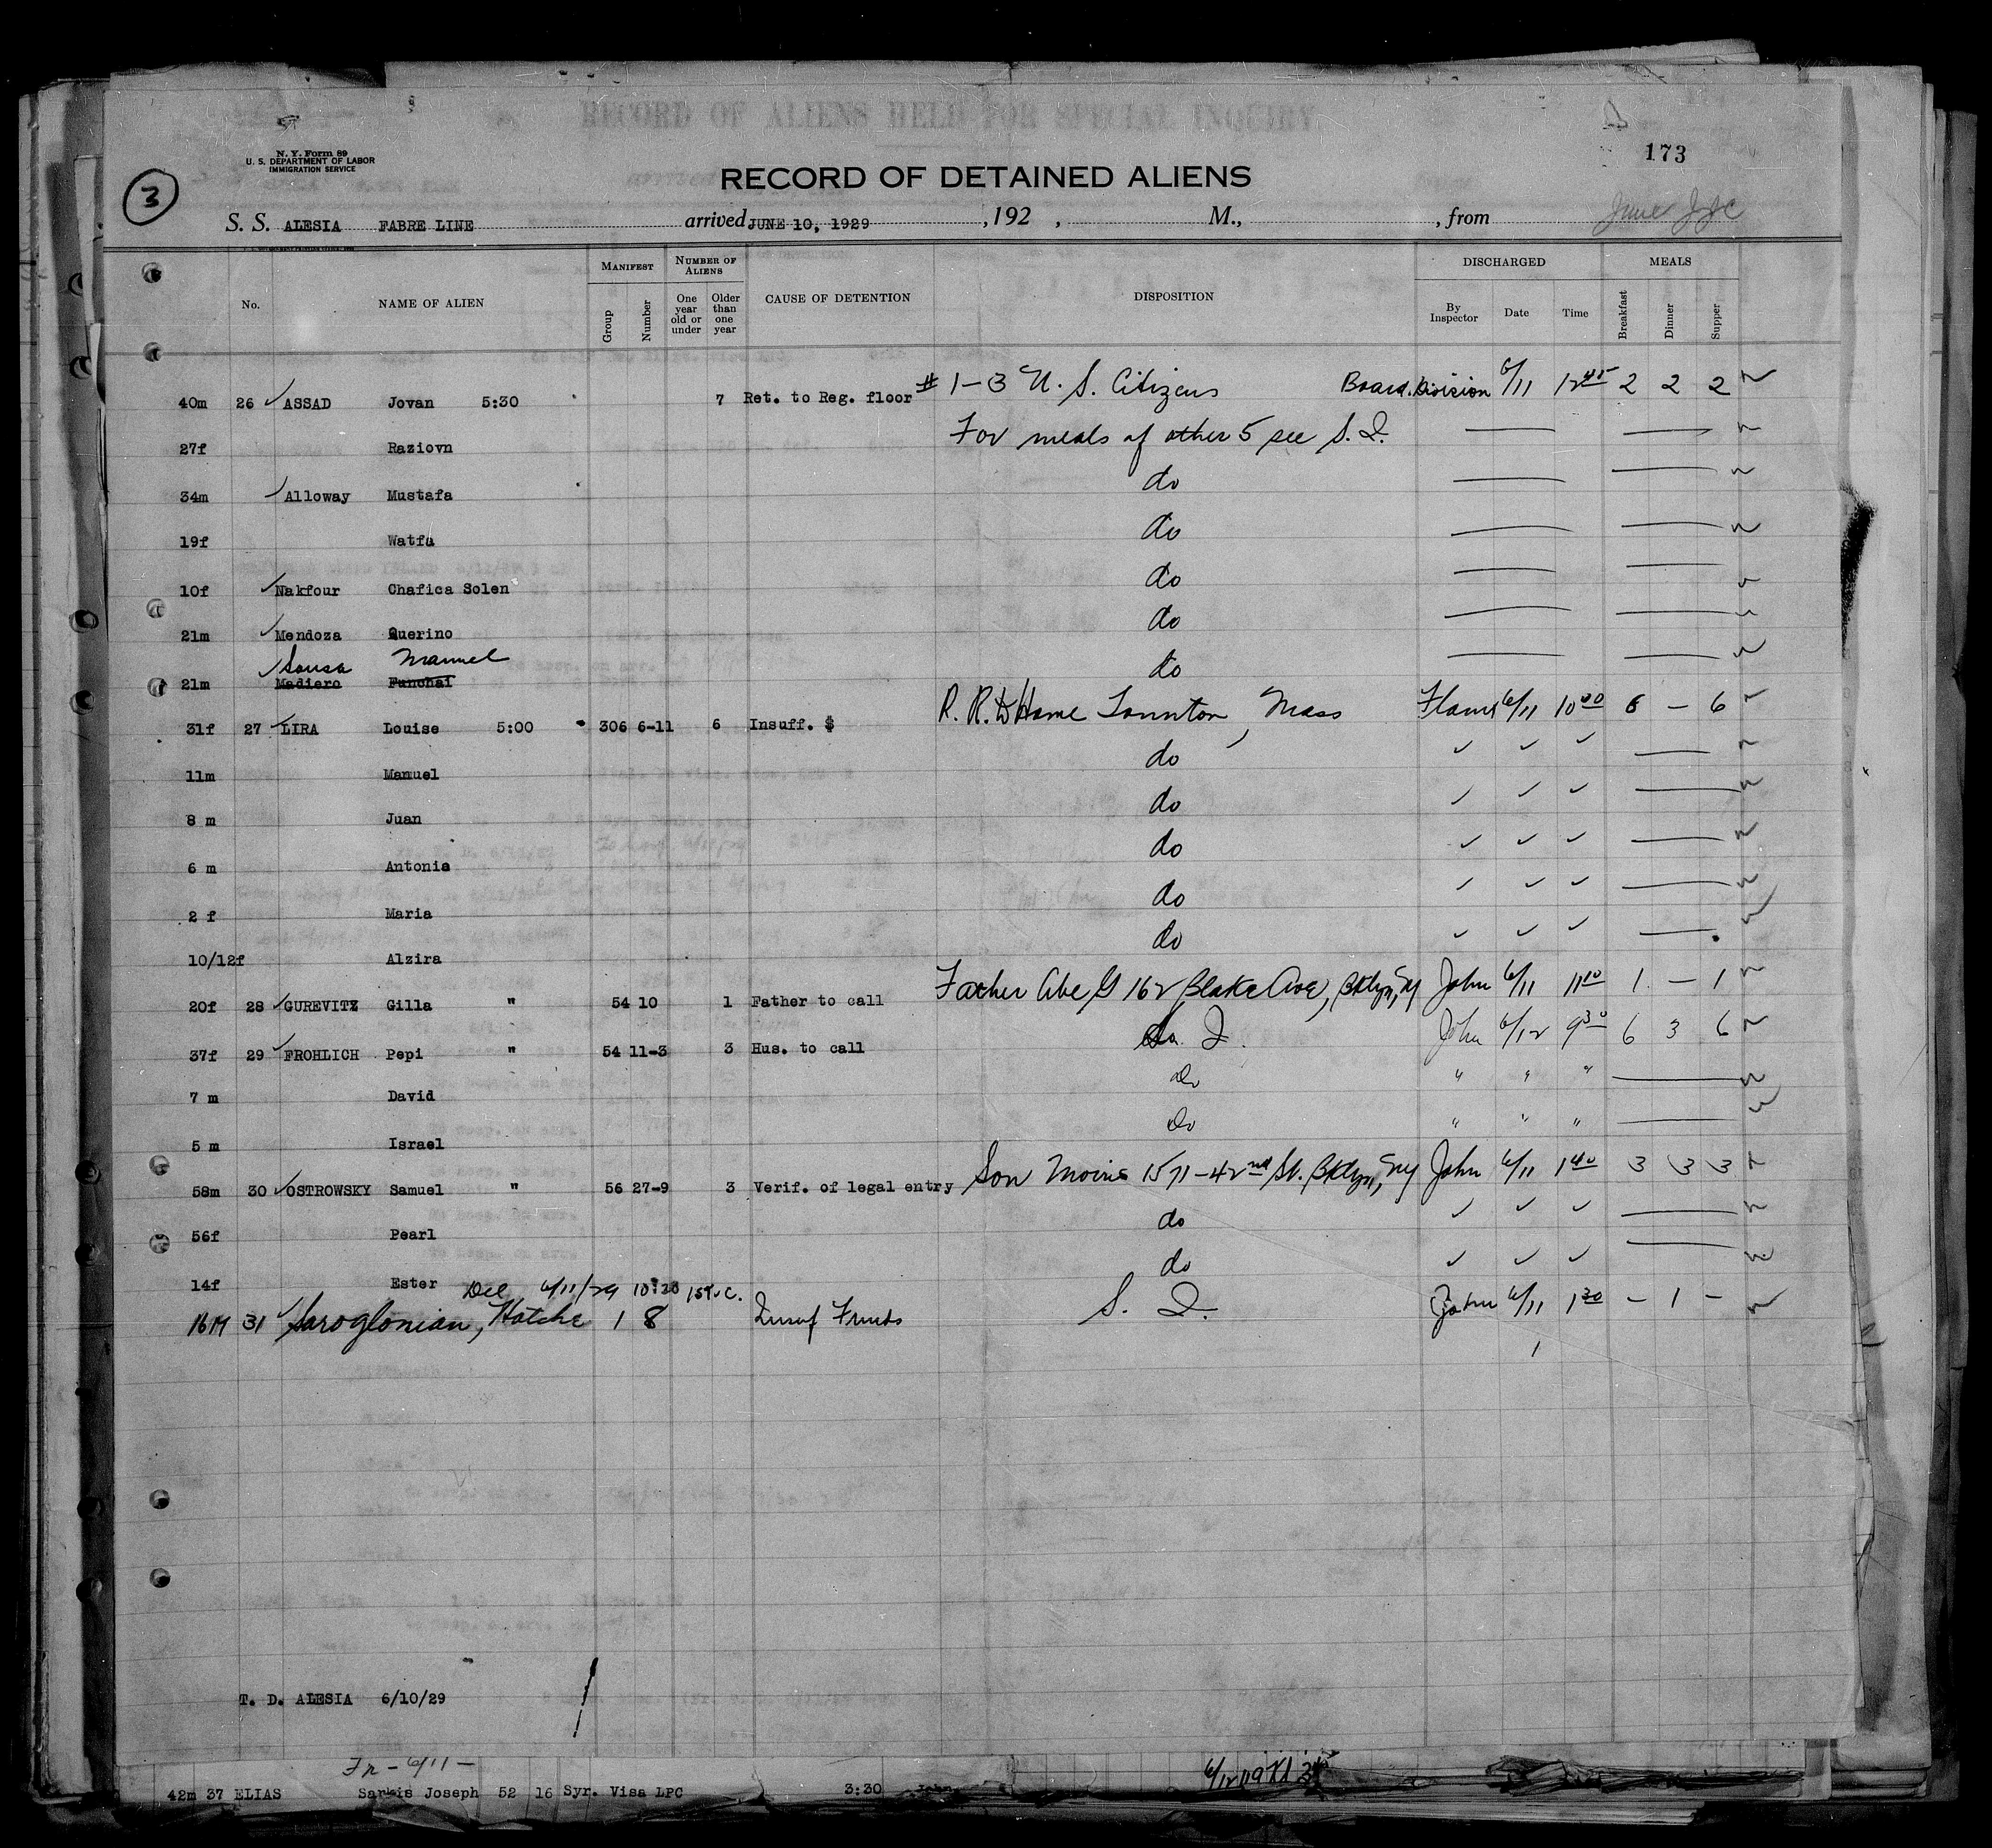 RECORD OF ALIENS HELD FOR SPECIAL INQUIRY
N. Y. Form 89
U. S. DEPARTMENT OF LABOR
IMMIGRATION SERVICE
173
3
RECORD OF DETAINED ALIENS
S. S. ALESIA FABRE LINE arrived JUNE 10, 1929, 192 , M., , from June
No. NAME OF ALIEN MANIFEST Group Number NUMBER OF ALIENS One year old or under Older than one year CAUSE OF DETENTION DISPOSITION DISCHARGED By Inspector Date Time MEALS Breakfast Dinner Supper
40m 26 ASSAD Jovan 5:30 7 Ret. to Reg. floor # 1-3 U. S. Citizens Board. Division 6/11 12 45 2 2 2
27f Raziovn For meals of other 5 see S. I.
34m Alloway Mustafa do
19f Watfa do
10f Nakfour Chafica Solen do
21m Mendoza Querino do
Sousa Manuel
21m Madiero Funchal do
31f 27 LIRA Louise 5:00 306 6-11 6 Insuff. $ R. R. to Home Taunton, Mass 6/11 10 00 6 - 6
11m Manuel do
8 m Juan do
6 m Antonia do
2 f Maria do
10/12f Alzira do
20f 28 GUREVITZ Gilla " 54 10 1 Father to call Father Abe G 162 Blake Ave, Bklyn, NY John 6/11 11 10 1 - 1
37f 29 FROHLICH Pepi " 54 11-3 3 Hus. to call John 6/12 9 30 6 3 6
7 m David Do " " "
5 m Israel Do " " "
58m 30 OSTROWSKY Samuel " 56 27-9 3 Verif. of legal entry Son Morris 1571-42nd St. Bklyn, NY John 6/11 1 40 3 3 3
56f Pearl do
14f Ester do
Del 6/11/29 10:30
16M 31 Saroglonian, Hatche 1 8 Insuf Funds S. I. John 6/11 1 30 - 1 -
T. D. ALESIA 6/10/29
Fr - 6/11 -
42m 37 ELIAS Sarkis Joseph 52 16 Syr. Visa LPC 3:30 John